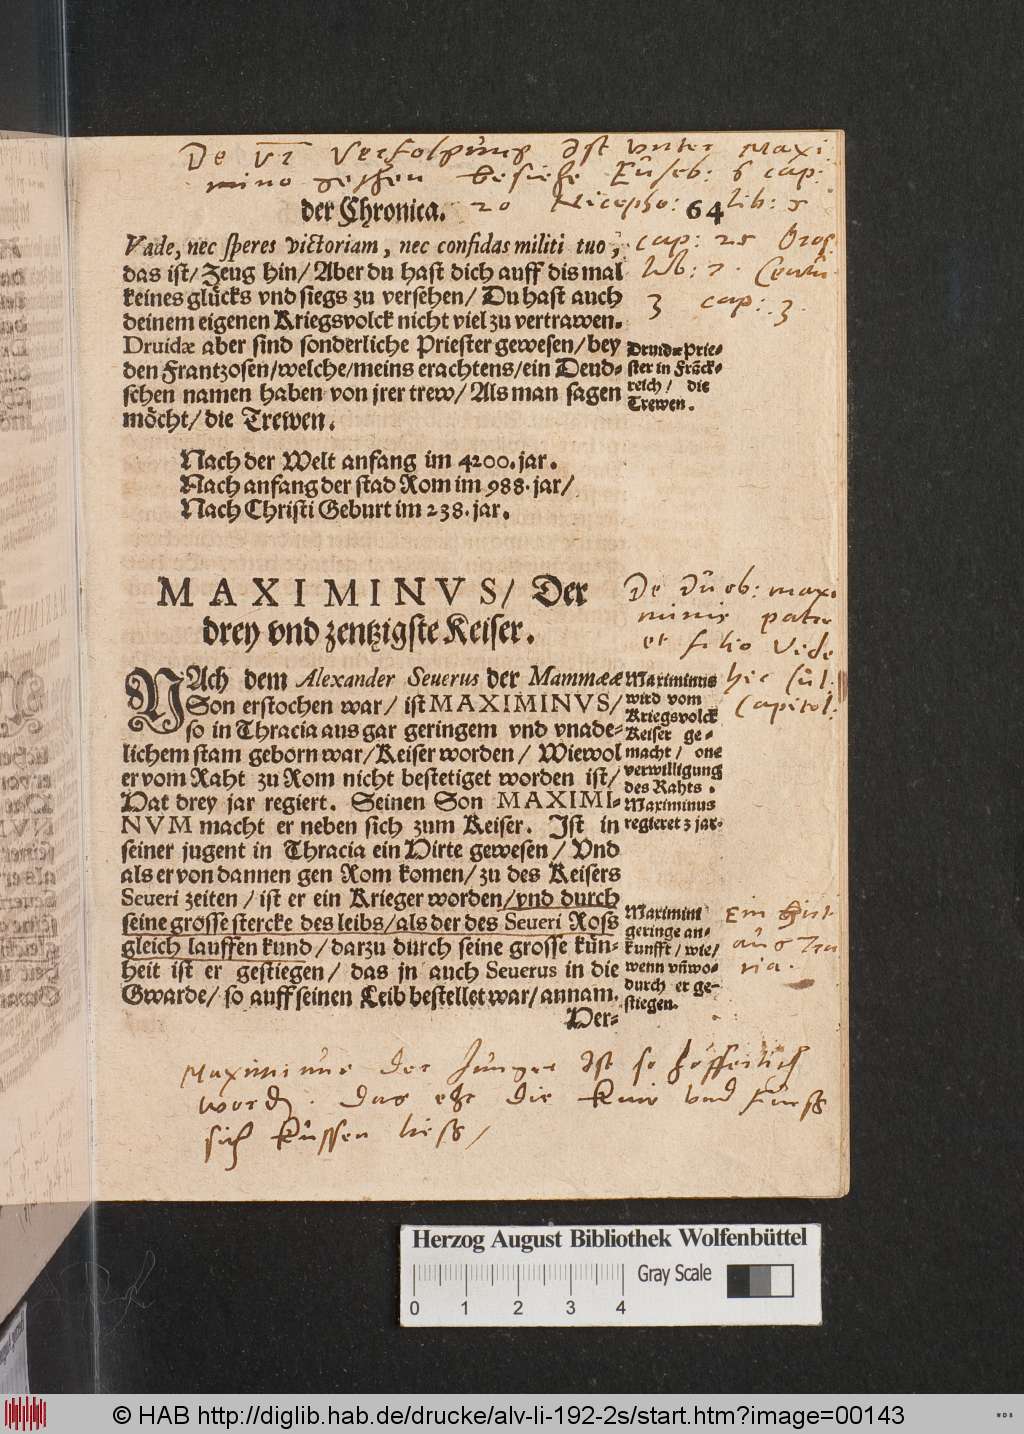 De VI Verfolgung Ist vnter Maxi
mino geschen besiehe Euseb: 6 cap:
der Chronica. 20 Nicepho: 64 lib: 5
Vade, nec speres victoriam, nec confidas militi tuo, cap: 25 Oros
das ist/ Zeug hin/ Aber du hast dich auff dis mal lib: 7. Centu
keines glücks vnd siegs zu versehen/ Du hast auch 3 cap: 3.
deinem eigenen Kriegsvolck nicht viel zu vertrawen.
Druidæ aber sind sonderliche Priester gewesen/ bey
den Frantzosen/ welche/ meins erachtens/ ein Deud-
schen namen haben von jrer trew/ Als man sagen
möcht/ die Trewen.
Druidæ Prie-
ster in Franck-
reich/ die
Trewen.
Nach der Welt anfang im 4200. jar.
Nach anfang der stad Rom im 988. jar/
Nach Christi Geburt im 238. jar.
MAXIMINVS/ Der
drey vnd zentzigste Keiser.
De duob: maxi
minis patre
et filio vide
hic Jul.
Capitol:
NAch dem Alexander Seuerus der Mammææ
Son erstochen war/ ist MAXIMINVS/
so in Thracia aus gar geringem vnd vnade-
lichem stam geborn war/ Keiser worden/ Wiewol
er vom Raht zu Rom nicht bestetiget worden ist/
Hat drey jar regiert. Seinen Son MAXIMI-
NVM macht er neben sich zum Keiser. Ist in
seiner jugent in Thracia ein Hirte gewesen/ Vnd
als er von dannen gen Rom komen/ zu des Keisers
Seueri zeiten/ ist er ein Krieger worden/ vnd durch
seine grosse stercke des leibs/ als der des Seueri Ross
gleich lauffen kund/ darzu durch seine grosse kün-
heit ist er gestiegen/ das jn auch Seuerus in die
Gwarde/ so auff seinen Leib bestellet war/ annam.
Her-
Maximinus
wird vom
Kriegsvolck
Keiser ge-
macht/ one
verwilligung
des Rahts.
Maximinus
regieret 3 jar.
Maximini
geringe an-
kunfft/ wie/
wenn vñ wo-
durch er ge-
stiegen.
Ein Hirt
aus Tra
ria.
Maximinus der Junger Ist so hoffertich
word. Das ehr die knie vnd fuess
sich küssen liess/
Herzog August Bibliothek Wolfenbüttel
Gray Scale
0 1 2 3 4
© HAB http://diglib.hab.de/drucke/alv-li-192-2s/start.htm?image=00143